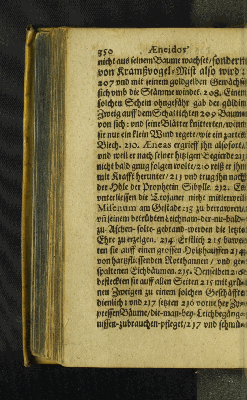 350 Æneidos
nicht aus seinem Baume wachset / sondern
von Kramßvogel-Mist also wird :
207 und mit seinem goldgelben Gewächse
sich umb die Stämme windet. 208. Einen
solchen Schein ohngefähr gab der güldin
Zweig auff dem Schalichten 209 Baume
von sich: und seine Blätter knitterten, wenn
sie nur ein klein Wind regete / wie ein zartes
Blech. 210. Æneas ergrieff ihn alsofort /
und weil er nach seiner hitzigen Begierde 211
nicht bald gnug folgen wolte / 210 reiß er ihn
mit Krafft herunter / 213 und trug ihn nach
der Höle der Prophetin Sibylle. 212. Es
unterliessen die Trojaner nicht mitterweil
Misenum am Gestade 213 zu betrawren
zu Aschen-solte-gebrand-werden die letzte
Ehre zu erzeigen. 214. Erstlich 215 bawe-
ten sie auff einen grossen Holtzhauffen 214
von hartzflüssenden Rothannen / und ge-
spaltenen Eichbäumen. 215. Denselben 216
besteckten sie auff allen Seiten 215 mit grü-
nen Zweigen zu einem solchen Geschäffte
dienlich 217 setzten 216 vorne her Zy-
pressen Bäume / die-man-bey-Leichbegäng-
nissen-zubrauchen-pfleget / 217 und schmü-